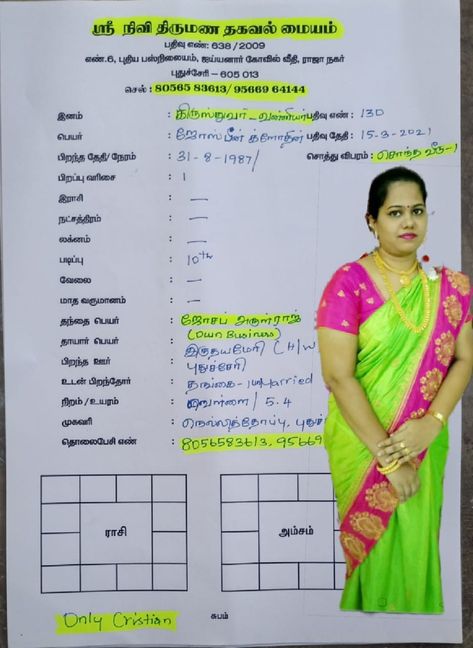 ஸ்ரீ நிவி திருமண தகவல் மையம்
பதிவு எண்: 638/2009
எண்.6, புதிய பஸ்நிலையம், ஐய்யனார் கோவில் வீதி, ராஜா நகர்
புதுச்சேரி – 605 013
செல் : 80565 83613/95669 64144
இனம் : கிருஸ்துவர் - வன்னியர் பதிவு எண் : 130
பெயர் : ஜோஸ்பின் பதிவு தேதி : 15-3-2021
பிறந்த தேதி/நேரம் : 31-8-1987/ சொத்து விபரம் : சொந்த வீடு-1
பிறப்பு வரிசை : 1
இராசி : —
நட்சத்திரம் : —
லக்னம் : —
படிப்பு : 10th
வேலை : —
மாத வருமானம் : —
தந்தை பெயர் : ஜோசப் அருள்ராஜ்
(Own Business)
தாயார் பெயர் : இருதயமேரி (H/W
பிறந்த ஊர் : புதுச்சேரி
உடன் பிறந்தோர் : தங்கை-1 married
நிறம்/உயரம் : / 5.4
முகவரி : நெல்லித்தோப்பு, புதுச்
தொலைபேசி எண் : 8056583613, 95669
ராசி
அம்சம்
Only Cristian
சுபம்